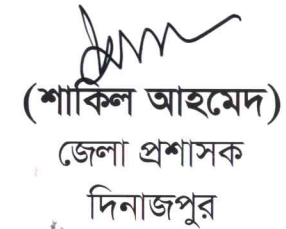 (শাকিল আহমেদ)
জেলা প্রশাসক
দিনাজপুর